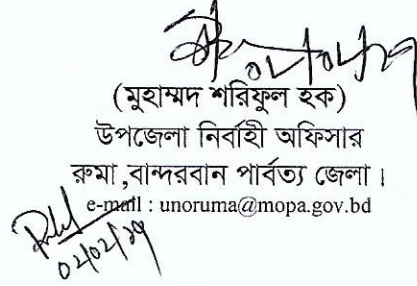 (মুহাম্মদ শরিফুল হক)
উপজেলা নির্বাহী অফিসার
রুমা ,বান্দরবান পার্বত্য জেলা ।
e-mail : unoruma@mopa.gov.bd
০২/০২/১৭